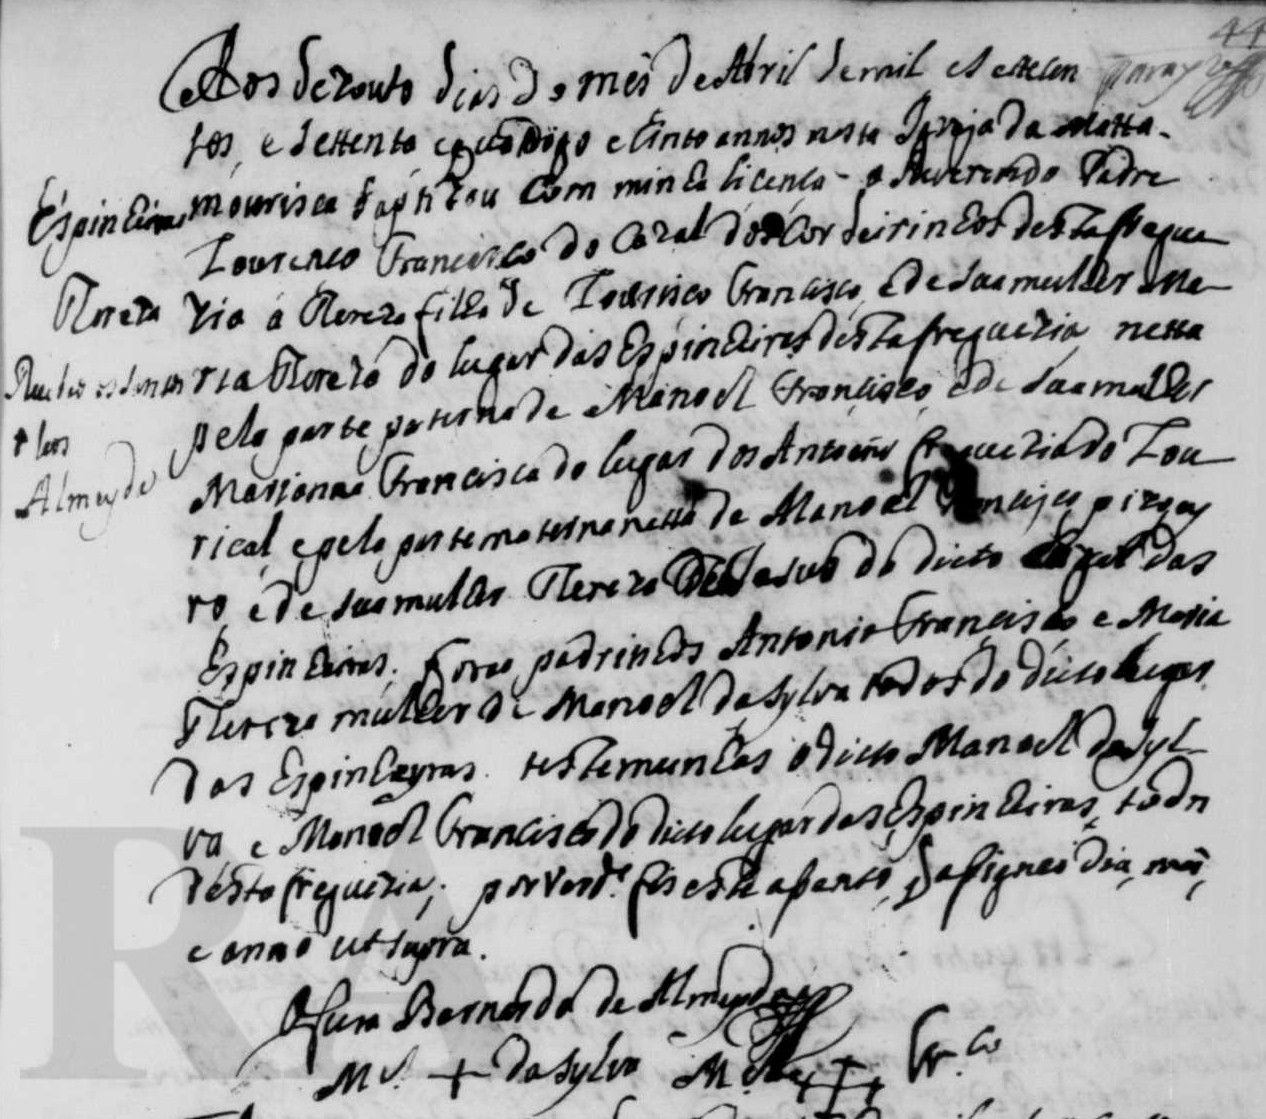 44
Aos dezouto dias do mês de Abril de mil e settecen
tos, e settenta e quatro digo e cinco annos nesta Igreja da Matta
Espinheiras
mourisca baptizou com minha licença o Reverendo Padre
Lourenço Francisco do Cazal dos Cordeirinhos desta fregue
Thereza
zia á Thereza filha de Lourenço Francisco, e de sua mulher Ma
Recebeo os Santos
ria Thereza do lugar das Espinheiras desta freguezia, netta
pela parte paterna de Manoel Francisco, e de sua mulher
Oleos
Marianna Francisca do lugar dos Antoens freguezia do Lou
Almeyda
riçal, e pela parte materna netta de Manoel Francisco
ro, e de sua mulher Thereza de Jesus do dicto lugar das
Espinheiras. Forao padrinhos Antonio Francisco e Maria
Thereza mulher de Manoel da Sylva todos do dicto lugar
das Espinheyras. testemunhas o dicto Manoel da Syl
va, e Manoel Francisco do dicto lugar das Espinheiras, todos
desta freguezia; por verd.e fis este assento, q assignei dia, mes,
e anno ut supra.
O Cura Bernardo de Almeyda
M.el + da Sylva M.el + Fr.co